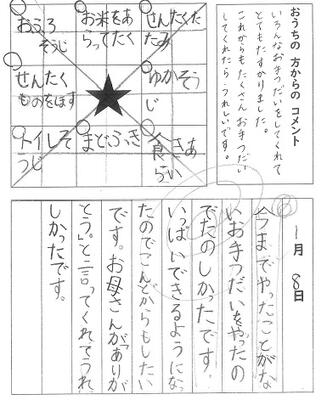 おうちの 方からの コメント
いろんなお手つだいをしてくれて
とてもたすかりました。
これからもたくさん お手つだい
してくれたら うれしいです。
せんたくた
たみ
お米をあ
らってたく
おふろ
そうじ
ゆかそう
じ
せんたく
ものをほす
食きあ
らい
まどふき
トイレそ
うじ
一月 8日
今までやったことがな
いお手つだいをやったの
でたのしかったです。
いっぱいできるようにな
たのでこんどからもしたい
です。お母さんが「ありが
とう。」と言ってくれてうれ
しかったです。